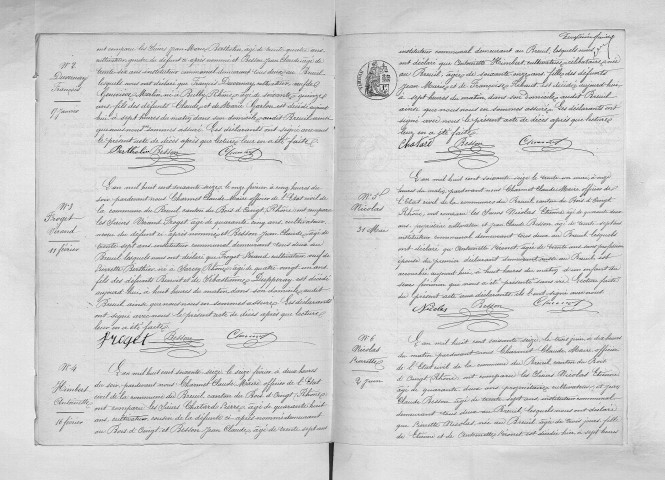 N° 2
Duvernay
François
9 janvier
ont comparu les Sieurs Jean Marie Berthelin âgé de trente quatre ans
cultivateur gendre du défunt ci après nommé et Besson Jean Claude âgé de
trente six ans instituteur communal demeurant tous deux au Breuil
lesquels nous ont déclaré que François Duvernay cultivateur
Rhône âgé de soixante quinze
ans fils des défunts Claude et de Marie Garlon est décédé aujourd'
hui à sept heures du matin dans son domicile audit Breuil ainsi
que nous nous en sommes assuré. Les déclarants ont signé avec nous
le présent acte de décès après que lecture leur en a été faite
Berthelin Besson Charmet
N° 3
Froget
Benand
11 février
L'an mil huit cent soixante seize le onze février à cinq heures du
soir pardevant nous Charmet Claude Maire officier de l'Etat civil de
la commune du Breuil canton du Bois d'Oingt, Rhône ont comparu
les Sieurs Froget âgé de quarante cinq ans cultivateur
du défunt ci après nommé, et Besson Jean Claude, âgé de
trente sept ans instituteur communal demeurant tous deux au
Breuil lesquels nous ont déclaré que Froget cultivateur veuf de
Pierrette Berthier né à Sarcey Rhône âgé de quatre vingt un ans
fils des défunts Benoit et de Sébastienne est décédé
aujourd'hui à huit heures du matin dans son domicile audit
Breuil ainsi que nous nous en sommes assuré. Les déclarants
ont signé avec nous le présent acte de décès après que lecture
leur en a été faite
Froget Besson Charmet
N° 4
Humbert
Antoinette
16 février
L'an mil huit cent soixante seize le seize février à deux heures
du soir pardevant nous Charmet Claude, Maire officier de l'Etat
civil de la commune du Breuil canton du Bois d'Oingt Rhône
ont comparu les Sieurs Chatard Pierre, âgé de quarante huit
ans, cultivateur de la défunte ci-après nommée demeurant
au Bois d'Oingt et Besson Jean Claude âgé de trente sept ans
instituteur communal demeurant au Breuil, lesquels nous
ont déclaré que Antoinette Humbert cultivatrice, célibataire, née
au Breuil, âgée de soixante onze ans fille des défunts
Jean Marie et de Françoise est décédée aujourd'hui
à sept heures du matin dans son domicile audit Breuil
ainsi que nous nous en sommes assuré. Les déclarants ont
signé avec nous le présent acte de décès après que lecture
leur en a été faite
Chatard Besson Charmet
N° 5
Nicolas
31 Mai
L'an mil huit cent soixante seize le trente un mai, à
heures du matin, pardevant nous Charmet Claude Maire officier de
l'Etat civil de la commune du Breuil canton du Bois d'Oingt
Rhône, ont comparu les Sieurs Nicolas Etienne âgé de quarante deux
ans propriétaire cultivateur et Jean Claude Besson âgé de trente sept ans
instituteur communal demeurant tous deux au Breuil lesquels
ont déclaré que Antoinette âgée de trente ans sans profession
épouse du premier déclarant domicilié audit au Breuil est
accouchée aujourd'hui à huit heures du matin d'un enfant du
sexe féminin que nous a été présenté sans vie Lecture faite
du présent acte aux déclarants ils l'ont signé avec nous
Nicolas Besson Charmet
N° 6
Nicolas
Pierrette
3 juin
L'an mil huit cent soixante seize le trois juin à dix heures
du matin pardevant nous Charmet Claude Maire officier
de l'Etat civil de la commune du Breuil canton du Bois
d'Oingt Rhône ont comparu les Sieurs Nicolas Etienne
âgé de quarante deux ans propriétaire cultivateur et Jean
Claude Besson âgé de trente sept ans instituteur communal
demeurant tous deux au Breuil, lesquels nous ont déclaré
que Pierrette Nicolas née au Breuil âgée de trois jours fille
de Etienne et de Antoinette est décédée hier à sept heures